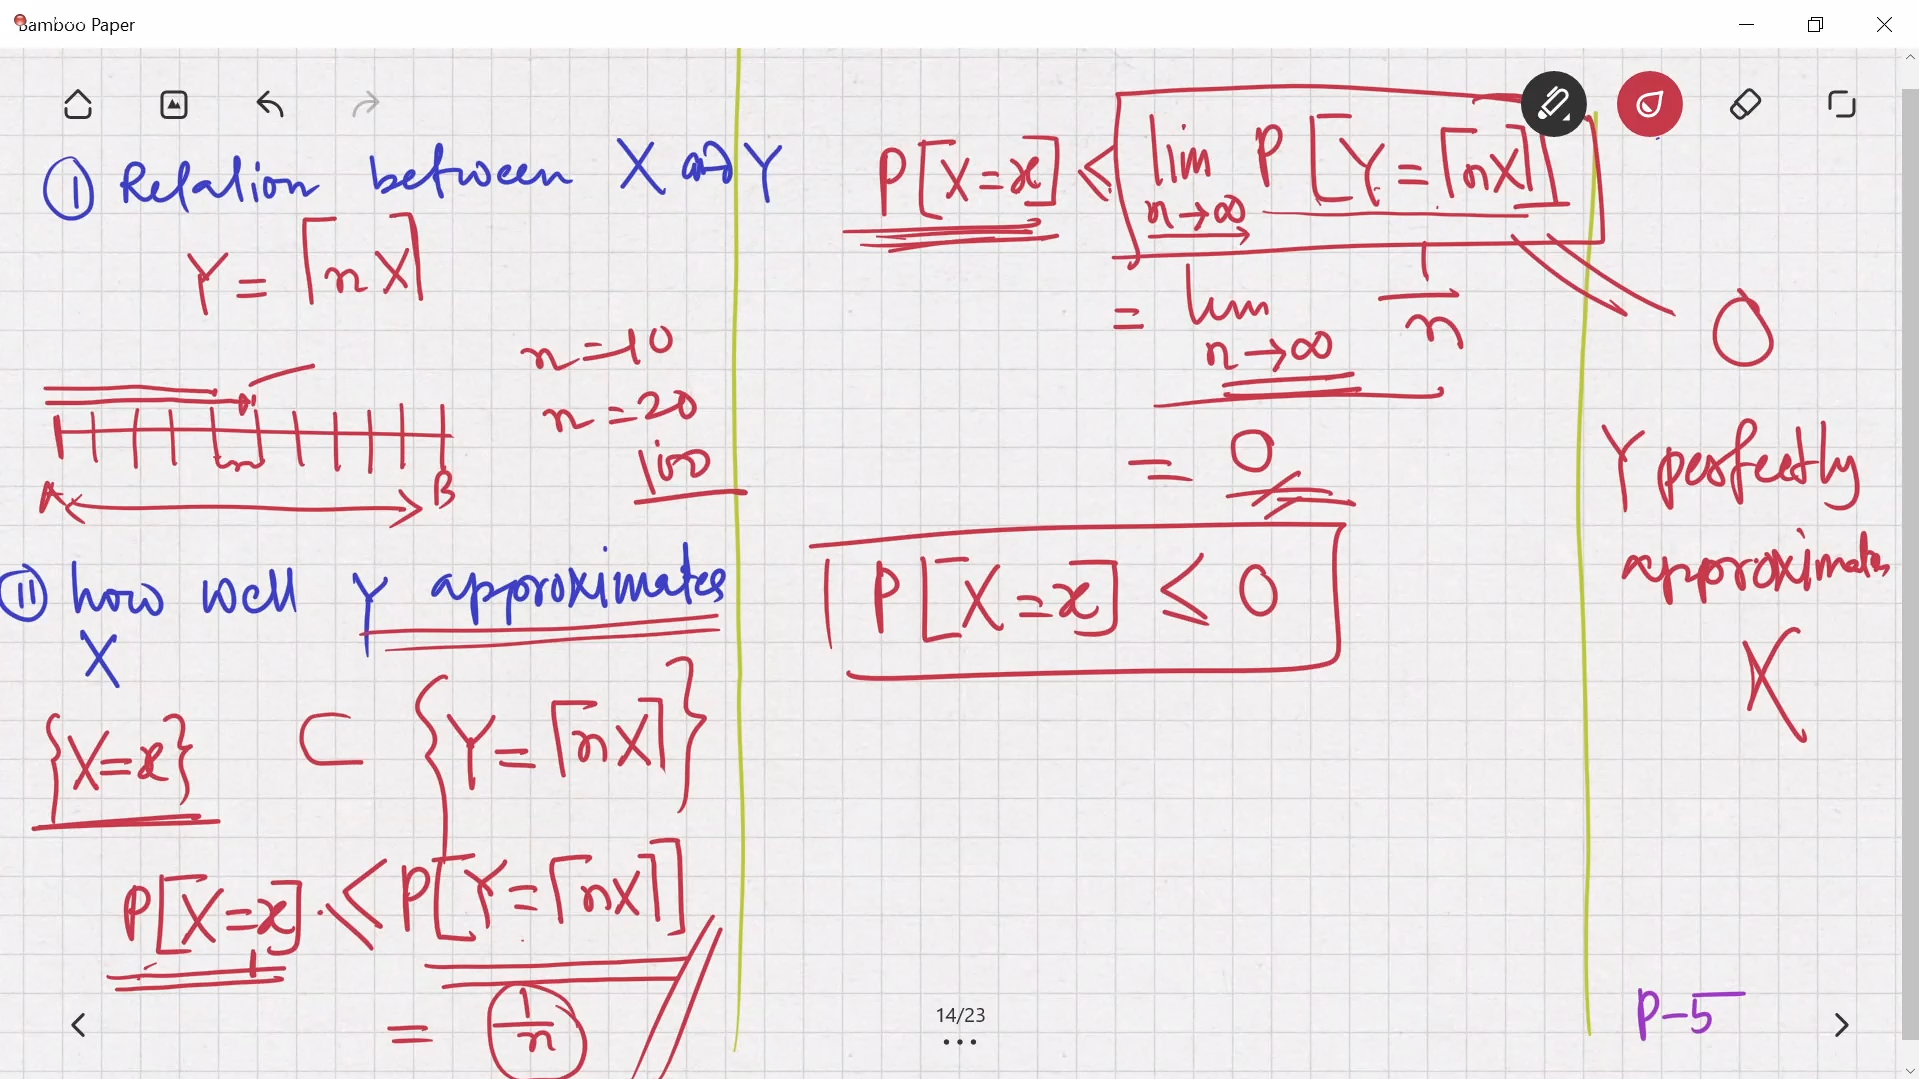 Bamboo Paper
① Relation between X and Y
Y = ⌈nX⌉
n = 10
n = 20
100
A B
⑪ how well Y approximates
X
{X = x} ⊂ {Y = ⌈nX⌉}
P[X = x] ≤ P[Y = ⌈nX⌉]
= 1/n
P[X = x] ≤ lim n→∞ P[Y = ⌈nX⌉]
= lim n→∞ 1/n
= 0
P[X = x] ≤ 0
0
Y perfectly
approximates
X
14/23
P-5